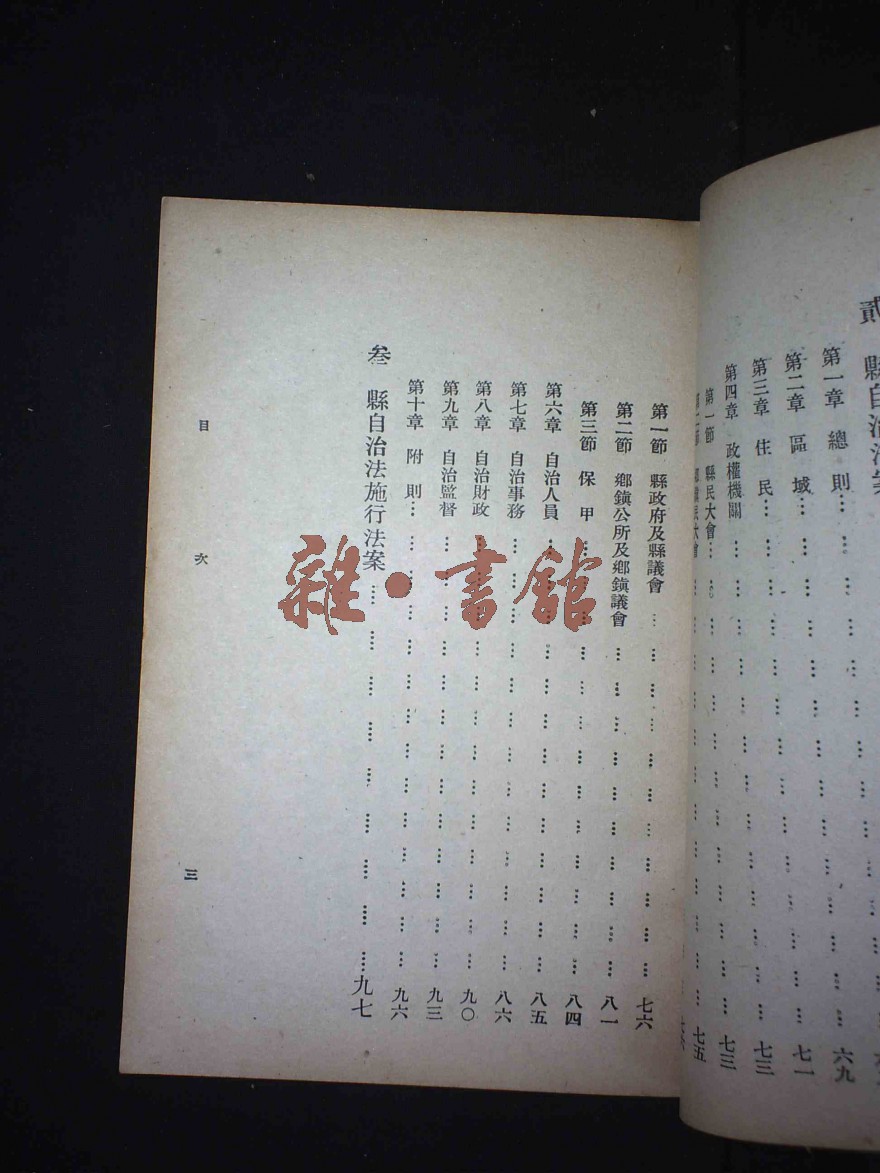 貳　縣自治法案
第一章　總　則…………六九
第二章　區　域…………七一
第三章　住　民…………七三
第四章　政權機關…………七三
第一節　縣民大會…………七五
第一節　縣政府及縣議會…………七六
第二節　鄉鎭公所及鄉鎭議會…………八一
第三節　保　甲…………八四
第六章　自治人員…………八五
第七章　自治事務…………八六
第八章　自治財政…………九〇
第九章　自治監督…………九三
第十章　附　則…………九六
叁　縣自治法施行法案…………九七
目　次　三
雜·書館